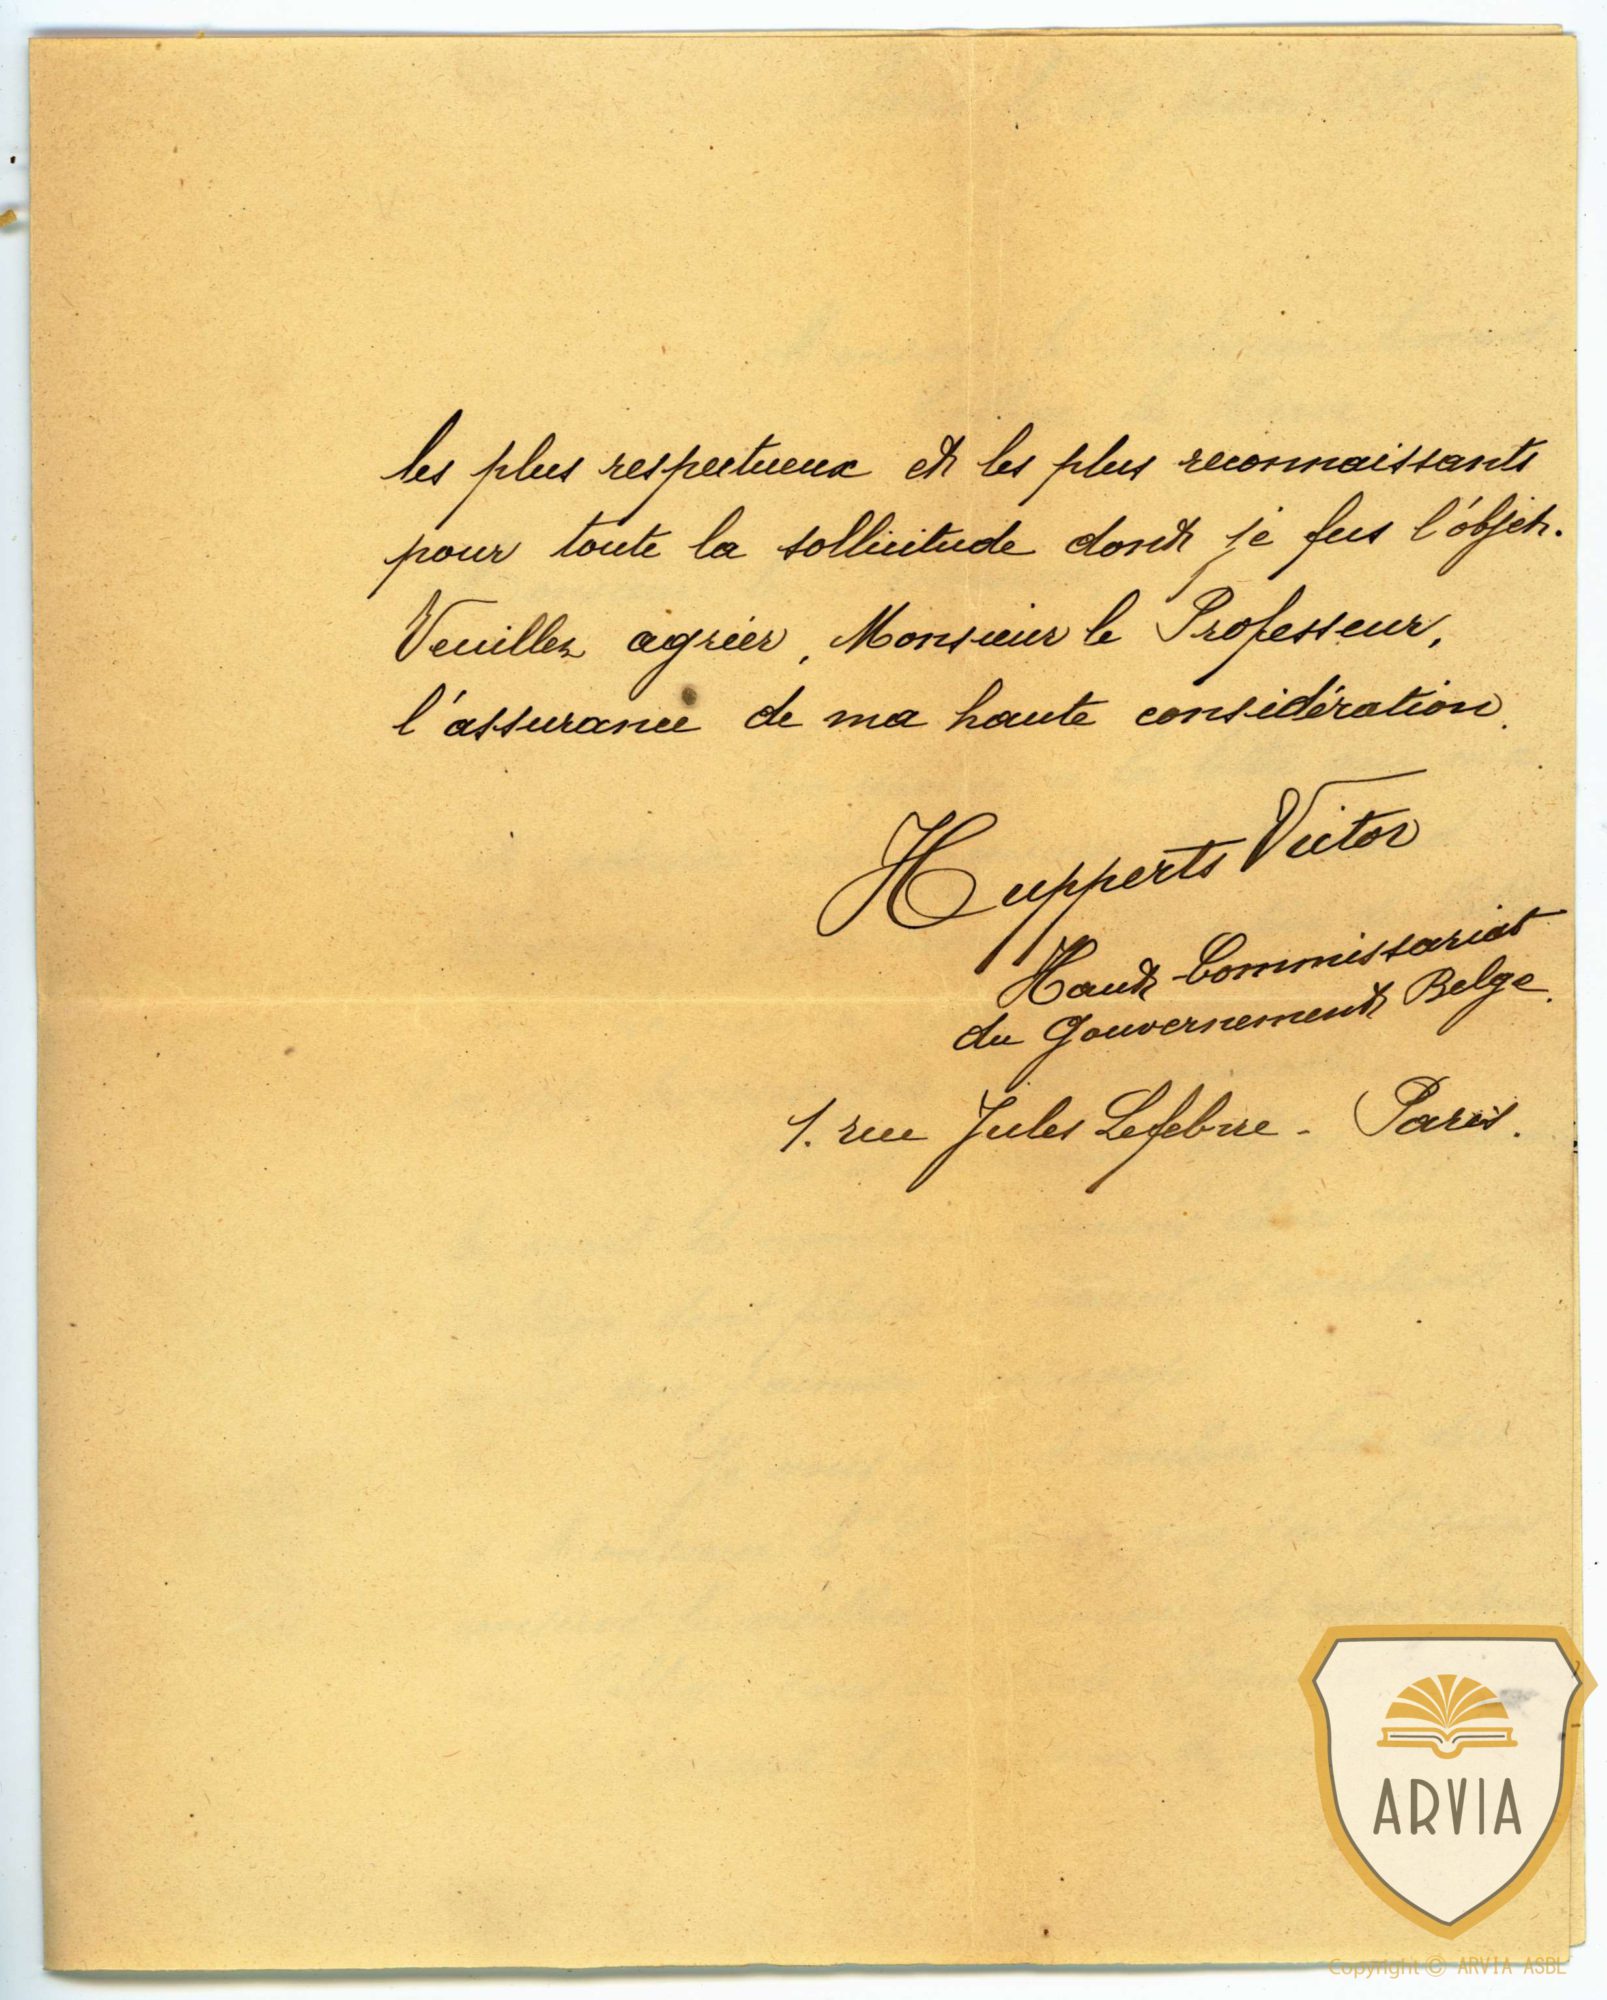 les plus respectueux et les plus reconnaissants
pour toute la sollicitude dont je fus l'objet.
Veuillez agréer, Monsieur le Professeur,
l'assurance de ma haute considération.
Hupperts Victor
Haut Commissariat
du Gouvernement Belge.
1. rue Jules Lefebvre - Paris.
ARVIA
Copyright © ARVIA ASBL